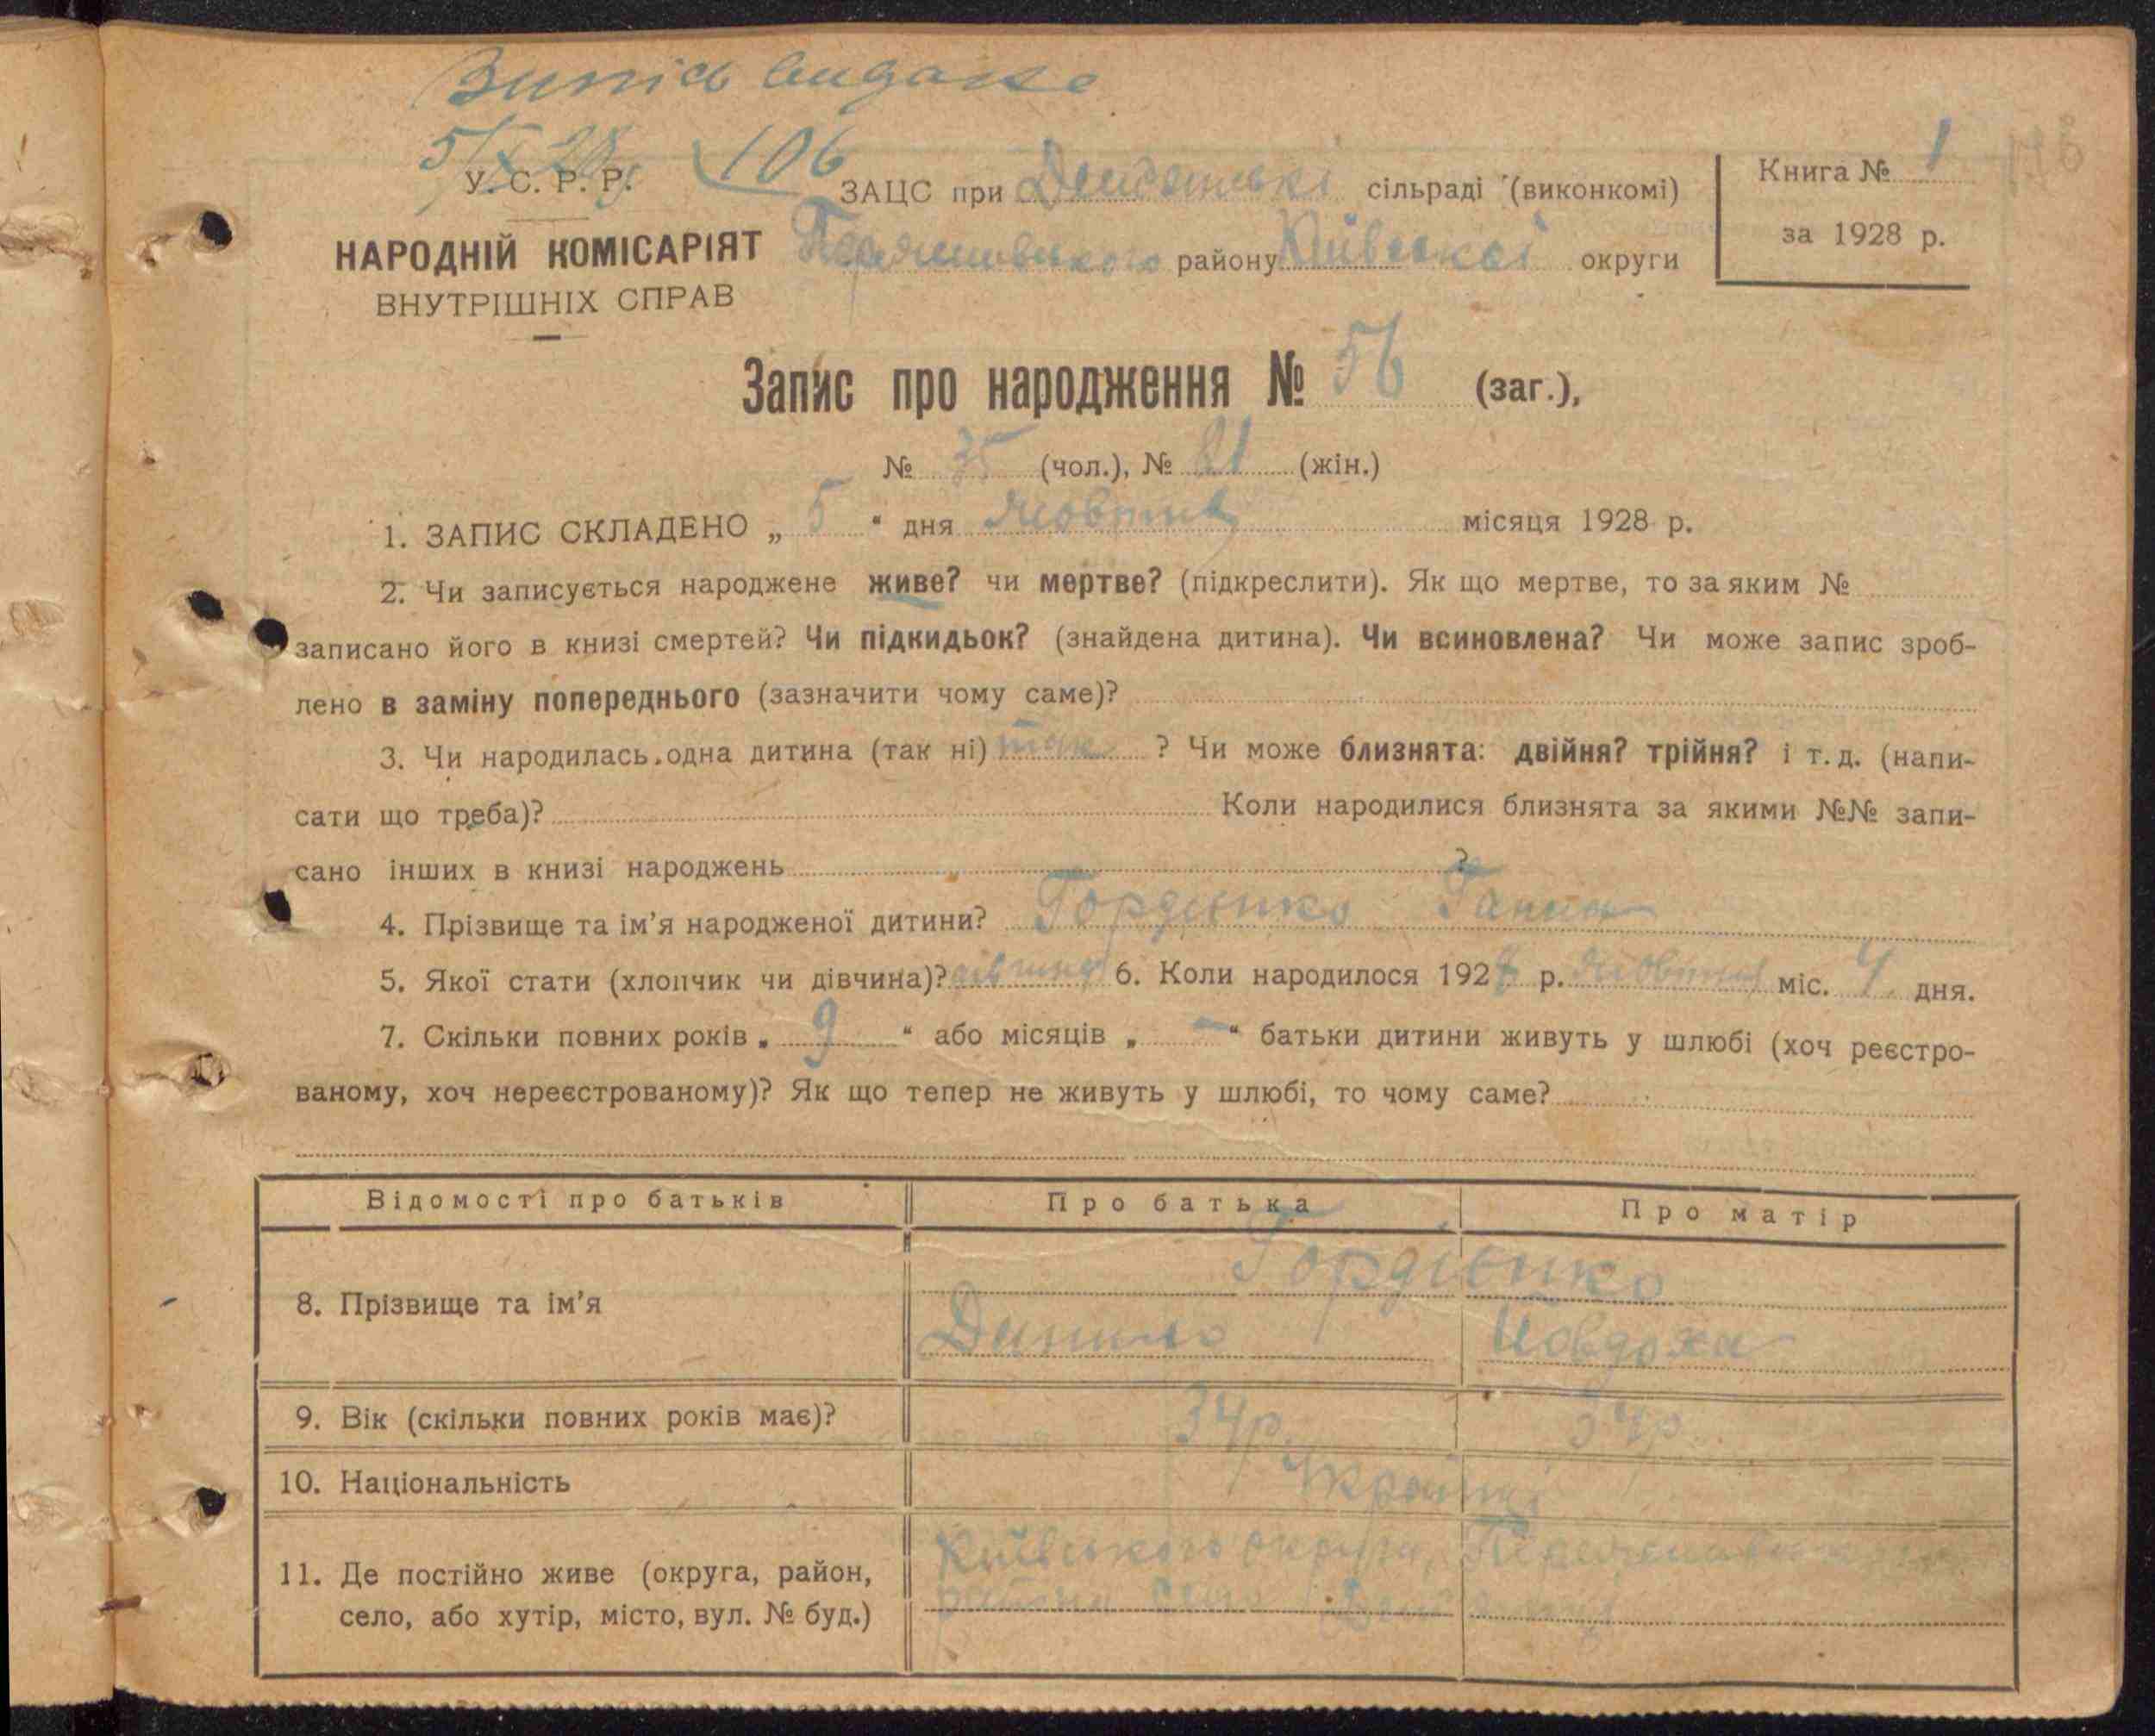 Випісь видано
5/X 28 р. 106
У. С. Р. Р.
НАРОДНІЙ КОМІСАРІЯТ
ВНУТРІШНІХ СПРАВ
ЗАЦС при сільраді (виконкомі)
району Київської округи
Книга № 1
за 1928 р.
Запис про народження № 56 (заг.),
№ 35 (чол.), № 21 (жін.)
1. ЗАПИС СКЛАДЕНО „ 5 “ дня Жовтня місяця 1928 р.
2. Чи записується народжене живе? чи мертве? (підкреслити). Як що мертве, то за яким №
записано його в книзі смертей? Чи підкидьок? (знайдена дитина). Чи всиновлена? Чи може запис зроб-
лено в заміну попереднього (зазначити чому саме)?
3. Чи народилась одна дитина (так ні) так ? Чи може близнята: двійня? трійня? і т. д. (напи-
сати що треба)? Коли народилися близнята за якими №№ запи-
сано інших в книзі народжень ?
4. Прізвище та ім’я народженої дитини? Гордієнко Ганна
5. Якої стати (хлопчик чи дівчина)? дівчина 6. Коли народилося 1928 р. Жовтня міс. 4 дня.
7. Скільки повних років „ 9 “ або місяців „ – “ батьки дитини живуть у шлюбі (хоч реєстро-
ваному, хоч нереєстрованому)? Як що тепер не живуть у шлюбі, то чому саме?
Відомості про батьків Про батька Про матір
8. Прізвище та ім’я Гордієнко
Данило Йовдоха
9. Вік (скільки повних років має)? 34 р. 34 р.
10. Національність Україн­ці
11. Де постійно живе (округа, район, Київського округи,
село, або хутір, місто, вул. № буд.) району село